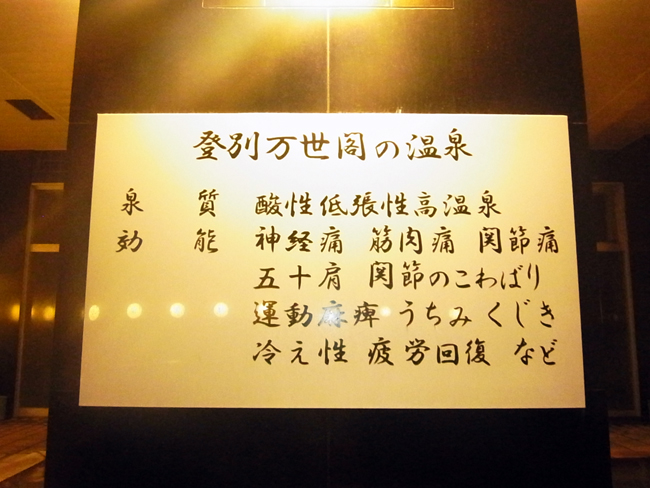 登別万世閣の温泉
泉質 酸性低張性高温泉
効能 神経痛 筋肉痛 関節痛
五十肩 関節のこわばり
運動麻痺 うちみ くじき
冷え性 疲労回復 など